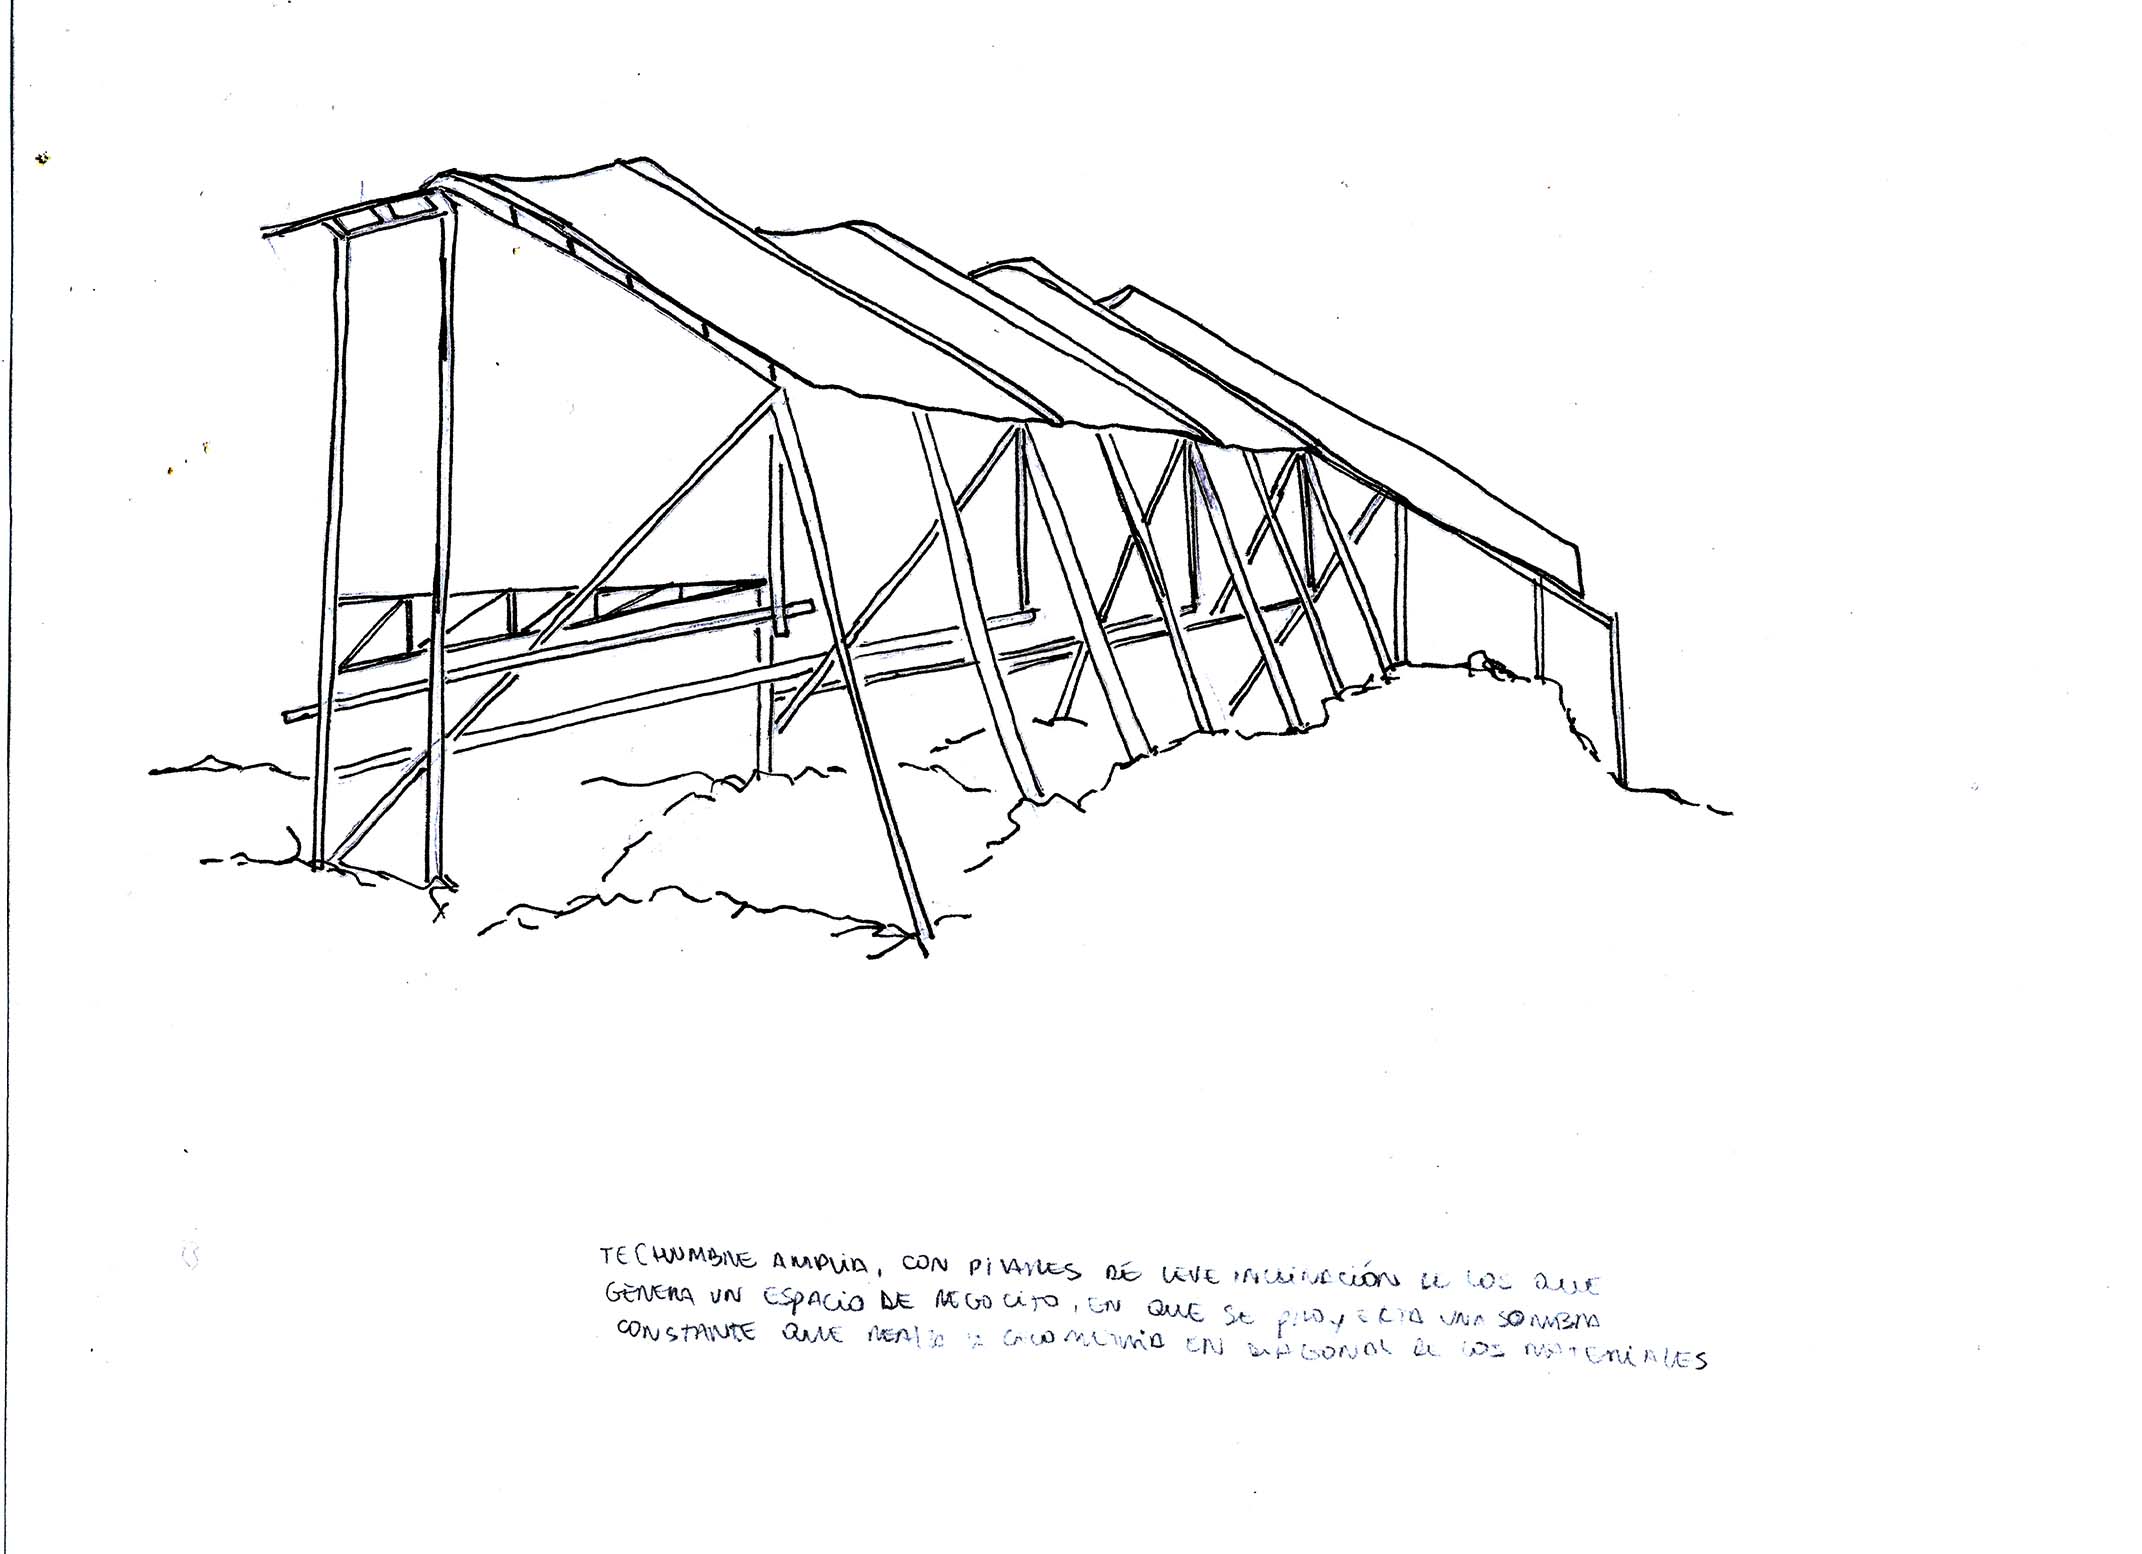 TECHUMBRE AMPLIA, CON PILARES DE LEVE INCLINACIÓN DE LOS QUE
GENERA UN ESPACIO DE REGOCIJO, EN QUE SE PROYECTA UNA SOMBRA
CONSTANTE QUE GEOMETRIA EN DIAGONAL DE LOS MATERIALES